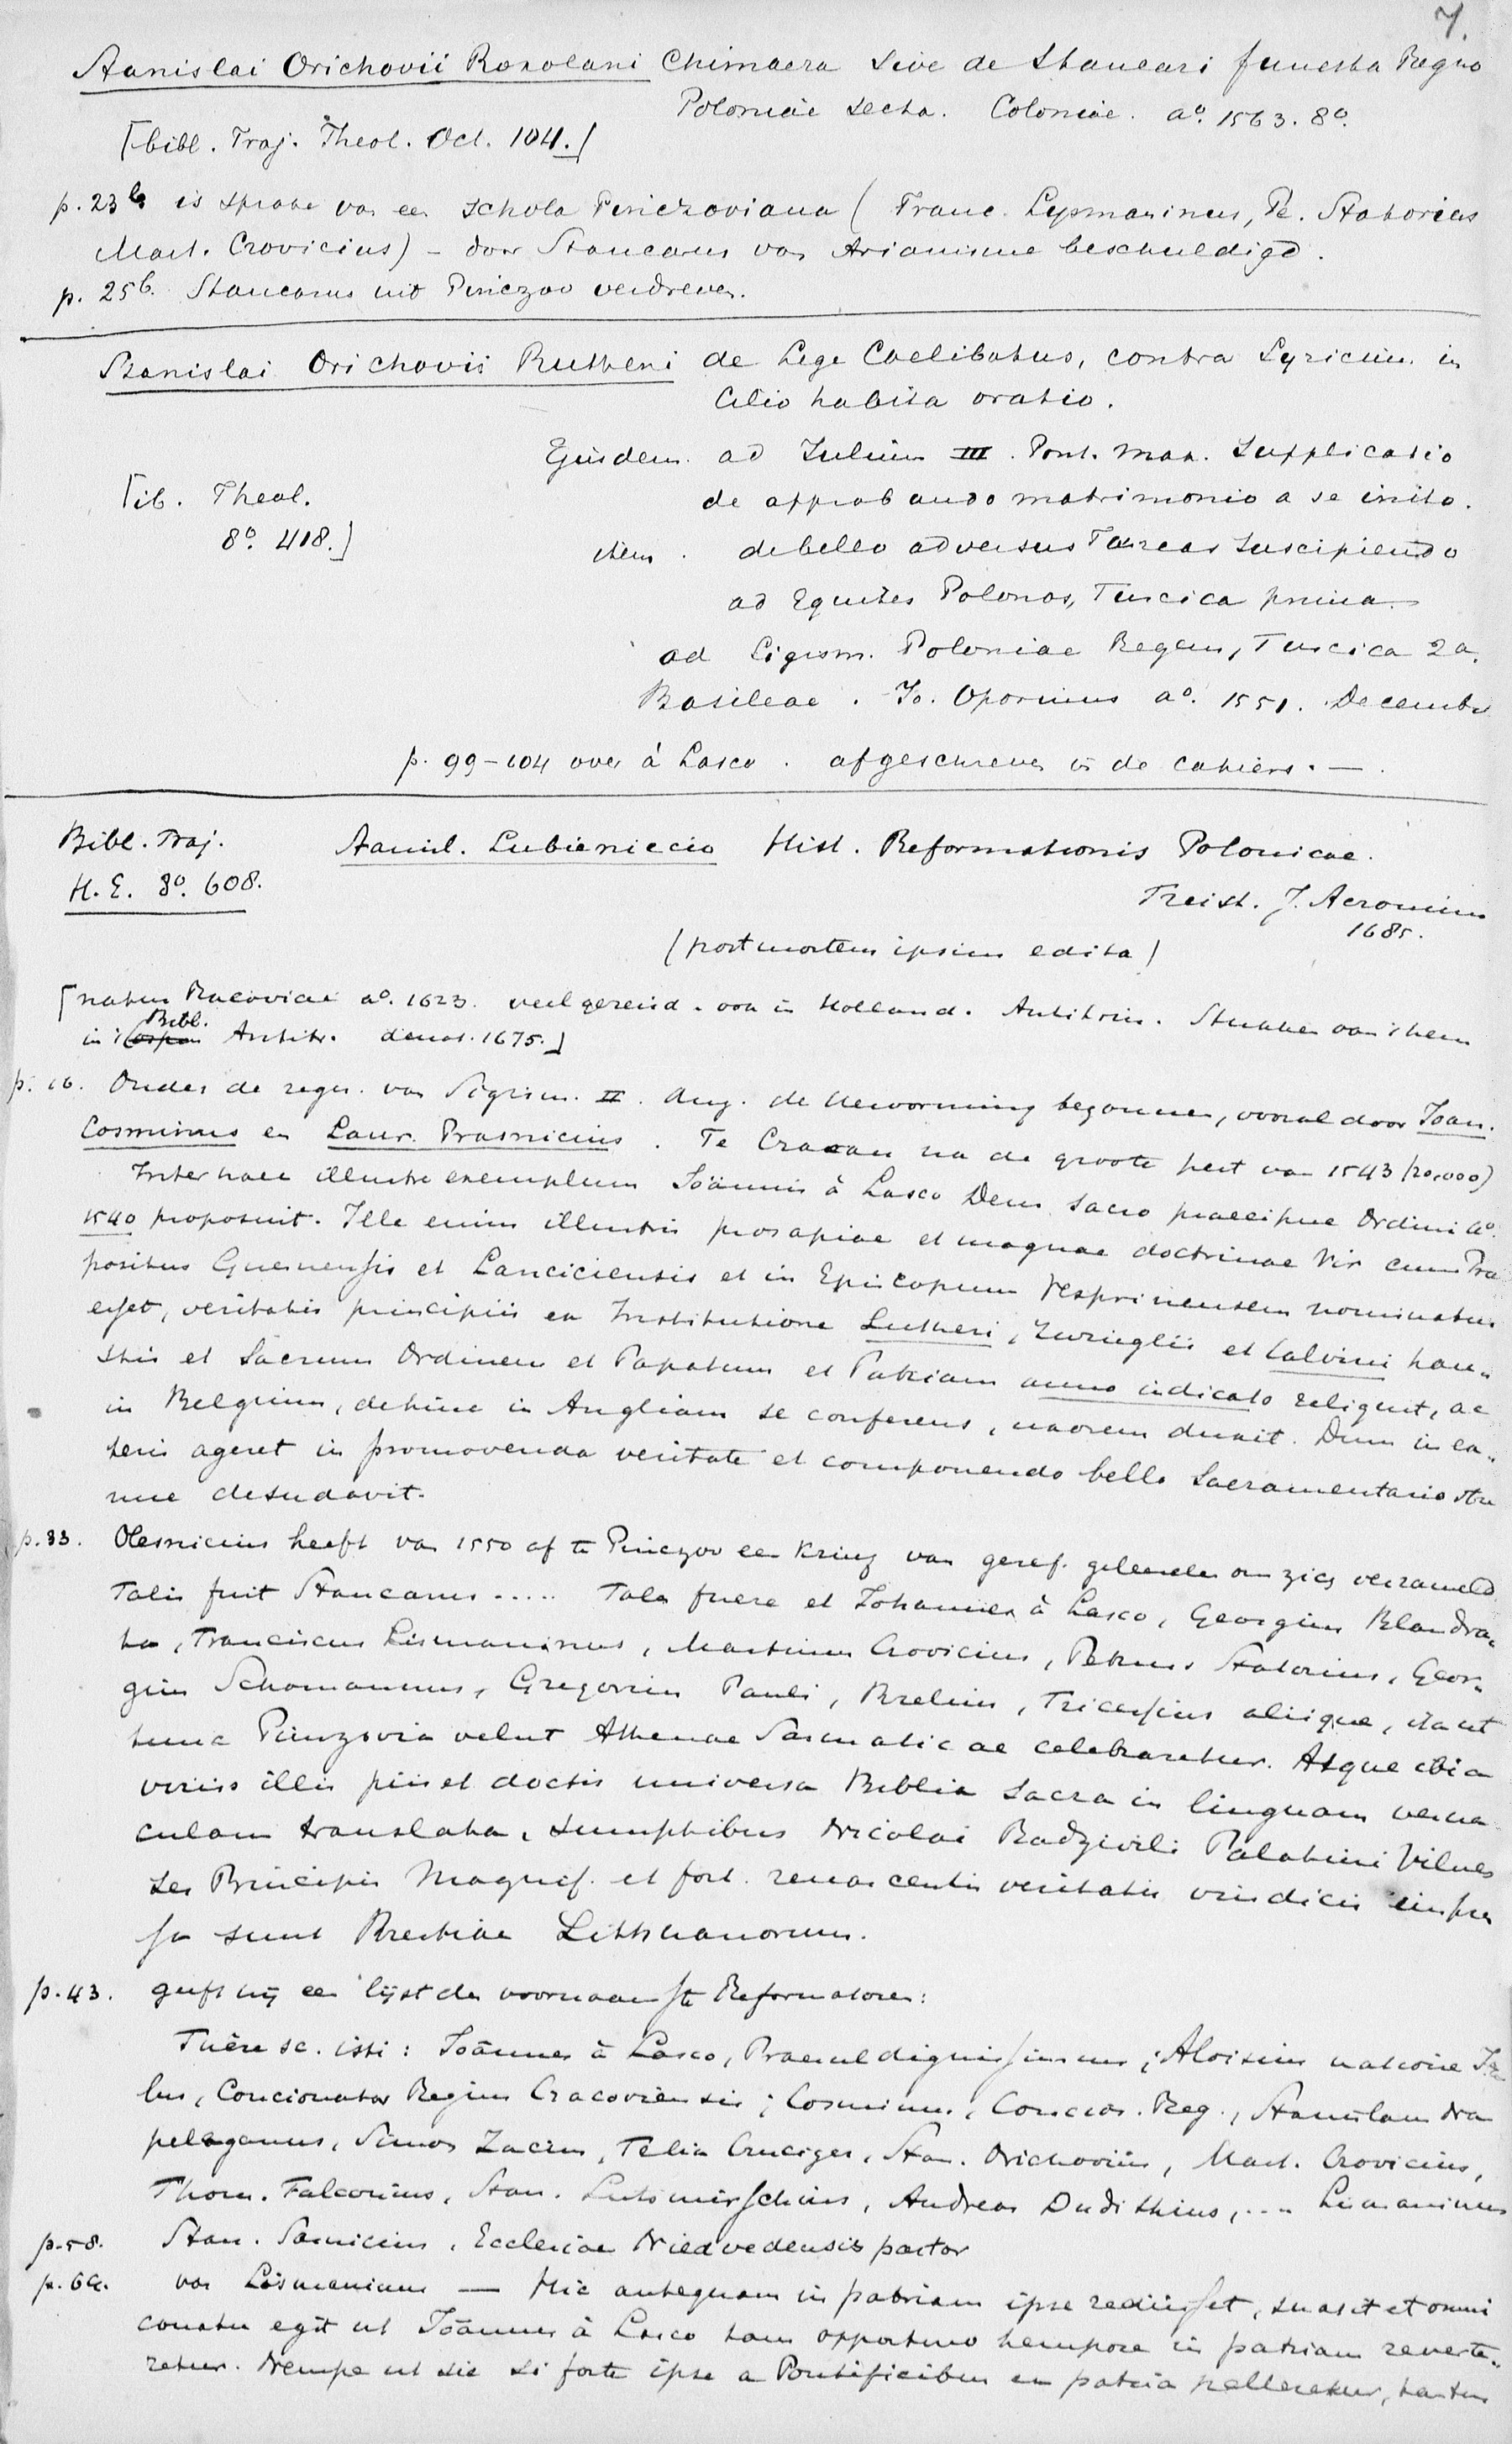 7.
Stanislai Orichovii Roxolani Chimaera sive de Stancari funesta Regno
Poloniae secta. Coloniae. aº. 1563. 8º.
[bibl. Traj. Theol. Oct. 104.]
p. 23b is sprake van een schola Pinczoviana (Franc. Lysmaninus, Pe. Statorius
Mart. Crovicius) - door Stancarus van Arianisme beschuldigd.
p. 25b. Stancarus uit Pinczov verdreven.
Stanislai Orichovii Rutheni de Lege Coelibatus, contra Syricium in
Cilio habita oratio.
Ejusdem. ad Julium III. Pont. Max. Supplicatio
de approbando matrimonio a se inito.
[ib. Theol.
8º. 418.]
item. de bello adversus Turcas suscipiendo
ad Equites Polonos, Turcica prima
ad Sigism. Poloniae Regem, Turcica 2a.
Basileae. Jo. Oporinus aº. 1551. Decembr
p. 99-104 over à Lasco. afgeschreven in de cahiers. —.
Bibl. Traj.
H. E. 8º. 608.
Stanisl. Lubieniecio Hist. Reformationis Polonicae.
Freist. J. Aeronium
1685.
(post mortem ipsius edita)
[natus Racoviae aº. 1623. veel gereisd. ook in Holland. Antitrin. Stukken van hem
in Bibl. Antitr. denat. 1675.]
p. 16. Onder de reger. van Sigism. II. Aug. de hervorming begonnen, vooral door Joan.
Cosminus en Laur. Prasnicius. Te Cracau na de groote pest van 1543 (20.000)
Inter haec illustre exemplum Joännis à Lasco Deus sacro praecipue Ordini aº.
1540 proposuit. Ille enim illustris prosapiae et magnae doctrinae Vir cum Prae
positus Gnesnensis et Lanciciensis et in Episcopum Vesprinensem nominatus
esset, veritatis principiis ex Institutione Lutheri, Zwinglii et Calvini hau-
stis et Sacrum Ordinem et Papatum et Patriam anno indicato reliquit, ac
in Belgium, dehinc in Angliam se conferens, uxorem duxit. Dum in ex-
teris ageret in promovenda veritate et componendo bello Sacramentario stre
nue desudavit.
p. 33. Olesnicius heeft van 1550 af te Pinczov een kring van geref. geleerden om zich verzameld
Talis fuit Stancarus ..... Tales fuere et Johannes à Lasco, Georgius Blandra-
ta, Franciscus Lismaninus, Martinus Crovicius, Petrus Statorius, Geor-
gius Schomannus, Gregorius Pauli, Brelius, Tricessius aliique, ita ut
tunc Pinczovia velut Athenae Sarmaticae celebraretur. Atque ibi a
viris illis piis et doctis universa Biblia Sacra in linguam verna
culam translata, sumptibus Nicolai Radzivili Palatini Vilnen
sis Principis Magnif. et fort. renascentis veritatis vindicis impres
sa sunt Brestiae Lithuanorum.
p. 43. geeft hij een lijst der voornaamste Reformatoren:
Fuêre sc. isti: Joännes à Lasco, Praesul dignissimus; Aloisius natione Ita
lus, Concionator Regius Cracoviensis; Cosminus, Concion. Reg., Stanislaus Dra
pelaganus, Simon Zacius, Felix Cruciger, Stan. Orichovius, Mart. Crovicius,
Thom. Falconius, Stan. Lutomirschius, Andreas Dudithius, .... Lismaninus
p. 58. Stan. Sarnicius, Ecclesiae Niedvedensis pastor
p. 64. van Lismaninus — Hic antequam in patriam ipse rediisset, suasit et omni
conatu egit ut Joännes à Lasco tam opportuno tempore in patriam reverte-
retur. Nempe ut sic si forte ipse a Pontificibus ex patria pelleretur, tantus